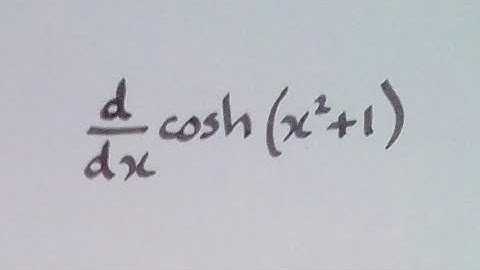 d/dx cosh(x²+1)